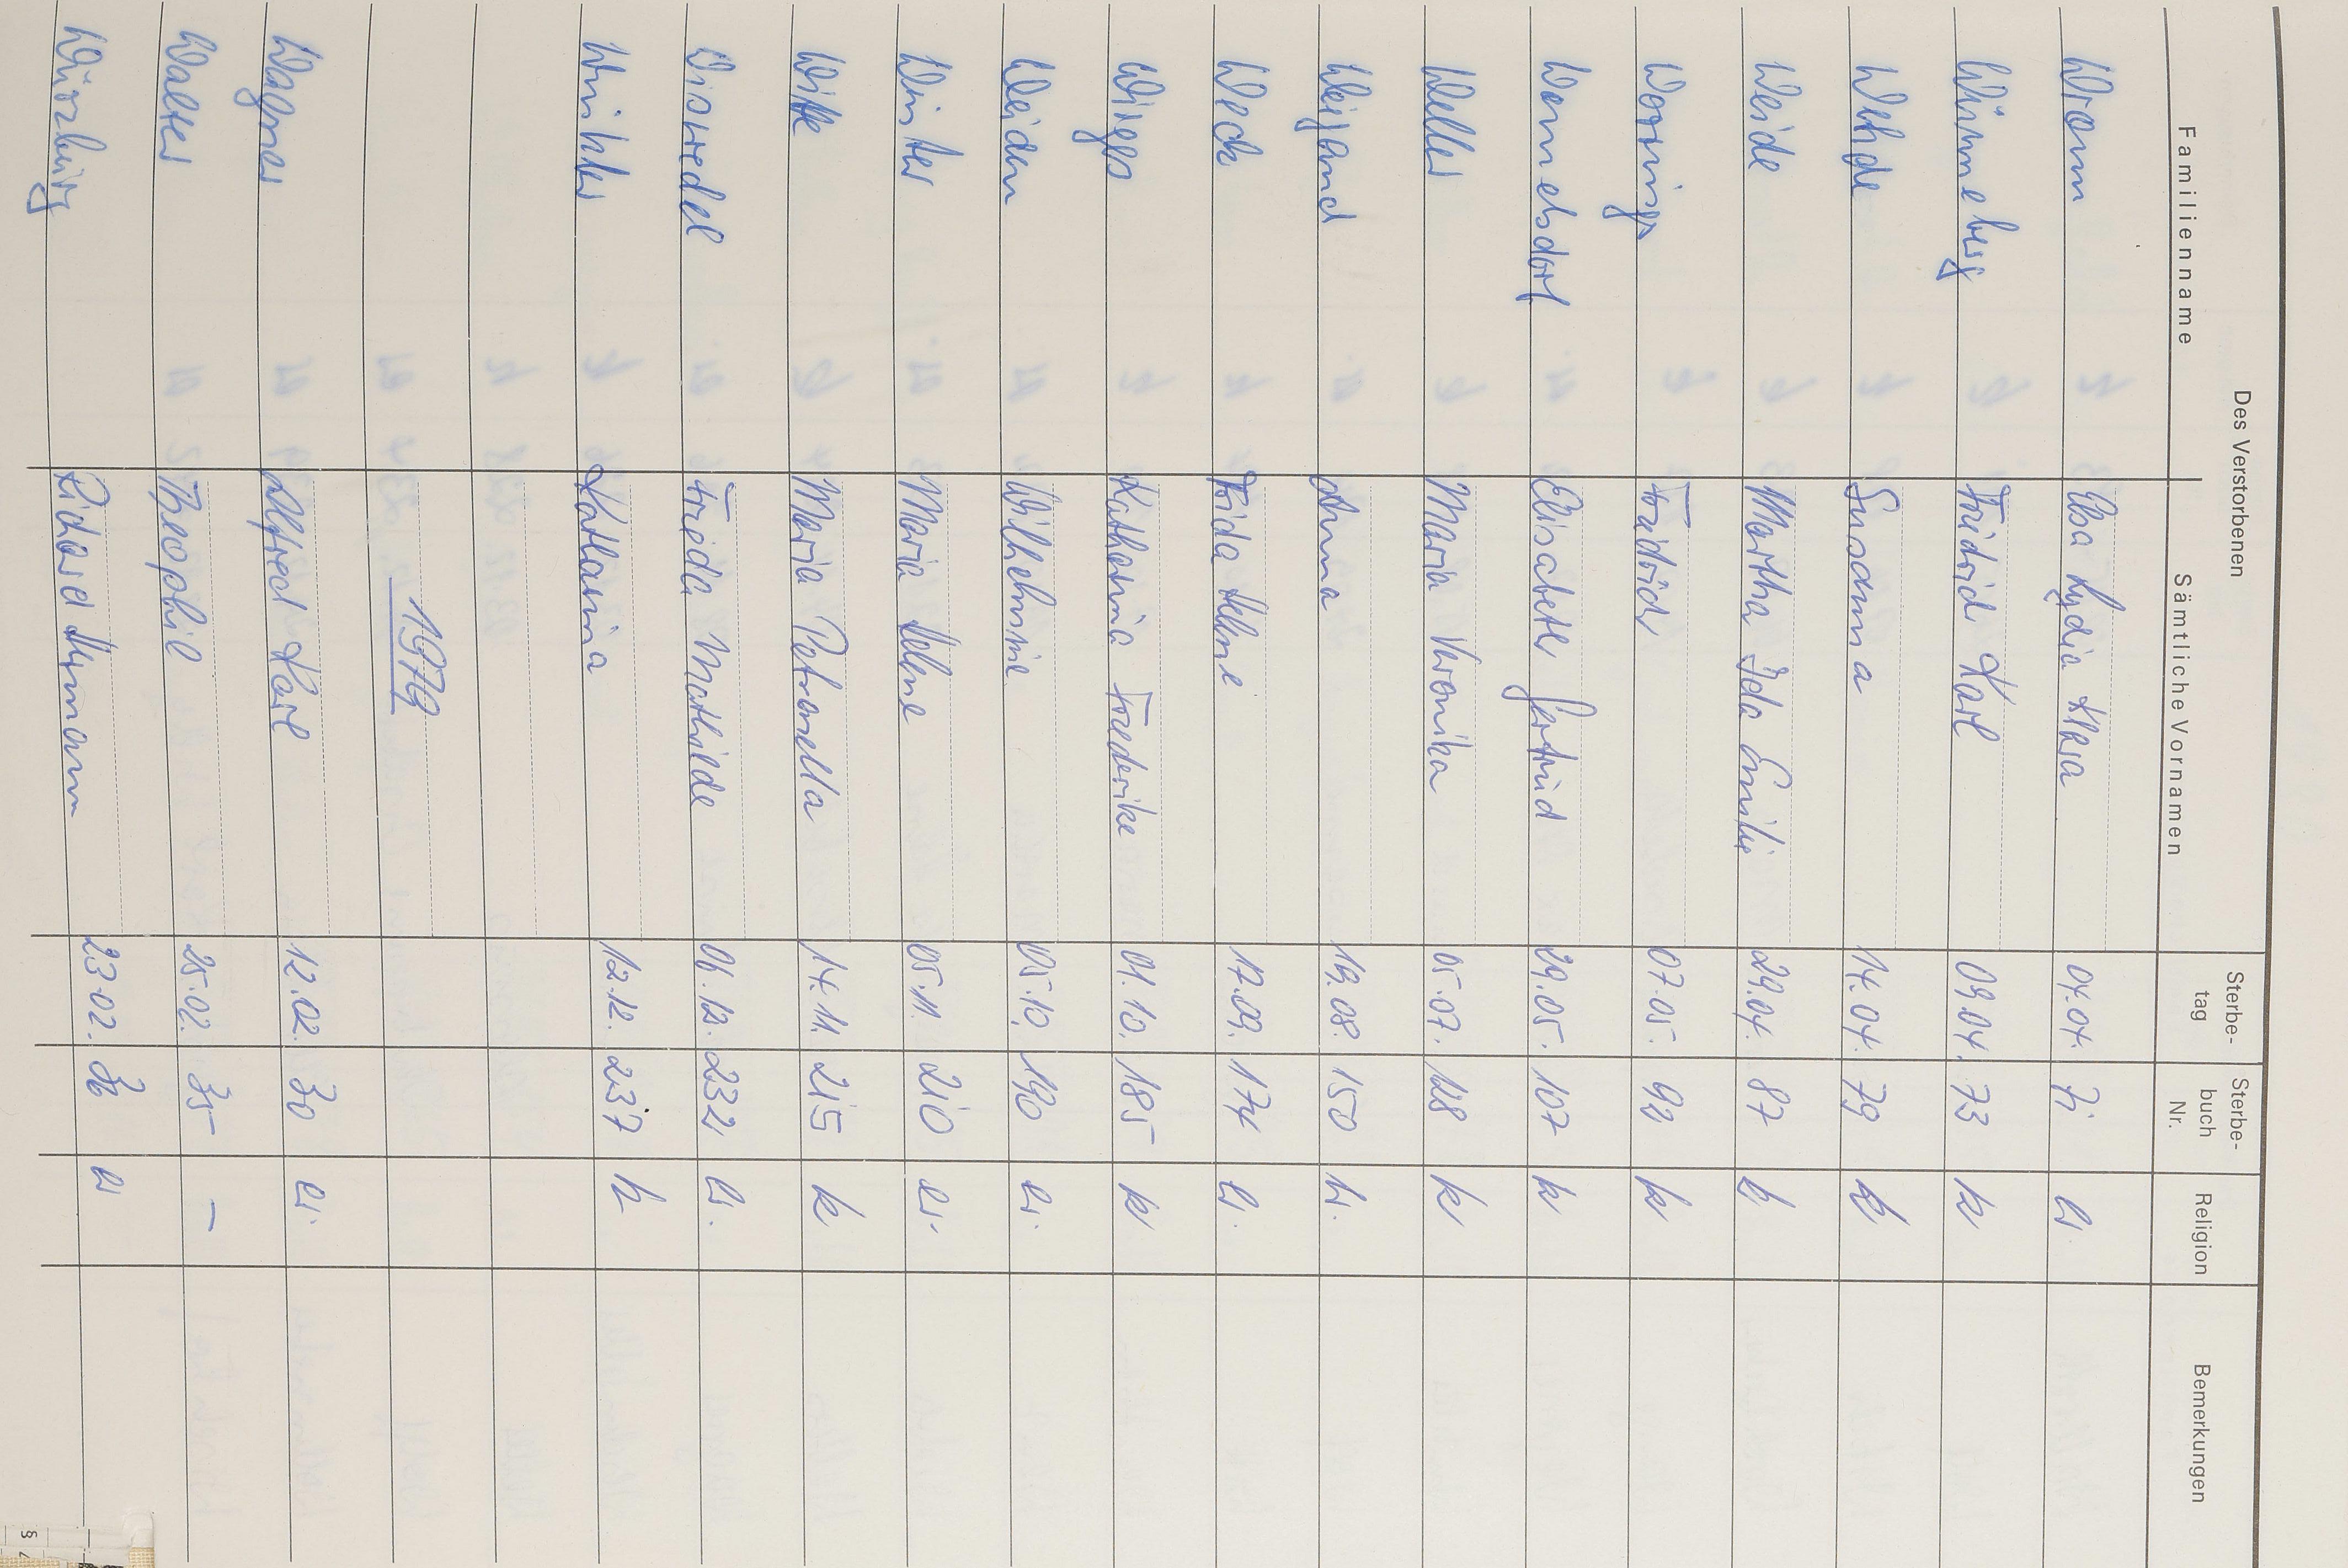 Des Verstorbenen
Familienname Sämtliche Vornamen Sterbe-tag Sterbe-buch Nr. Religion Bemerkungen
Wrann Elsa Lydia Klara 04.04. 71 ev.
Winneberg Friedrich Karl 09.04. 73 k
Wehde Susanna 14.04. 79 k
Weide Martha Ida Emilie 29.04. 87 k
Friedrich 07.05. 92 k
Wormelsdorf Elisabeth Gertrud 29.05. 107 k
Weller Maria Veronika 05.07. 128 k
Weigand Anna 19.08. 150
Weck Frida Helene 17.09. 174 ev.
Wirges Katharina Friederike 01.10. 185 k
Weiden Wilhelmine 05.10. 190 ev.
Winter Maria Helene 05.11. 210 ev.
Witte Maria Petronella 14.11. 215 k
Wisswedel Frieda Mathilde 06.12. 232 ev.
Winkler Katharina 12.12. 237 k
1979
Wagner Alfred Karl 12.02. 30 ev.
Walter Theophil 25.02. 35 –
Würzburg Richard Hermann 23.02. 36 ev